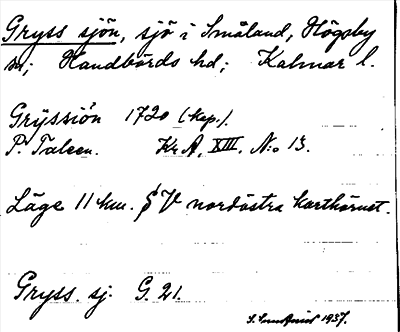 Gryss sjön, sjö i Småland, Högsby
sn; Handbörds hd; Kalmar l.
Grÿssiön 1720 (kop.).
P. Taleen. Kr A, XIII, N:o 13.
Läge 11 km. § V nordöstra karthörnet.
Gryss. sj. G. 21.
1937.